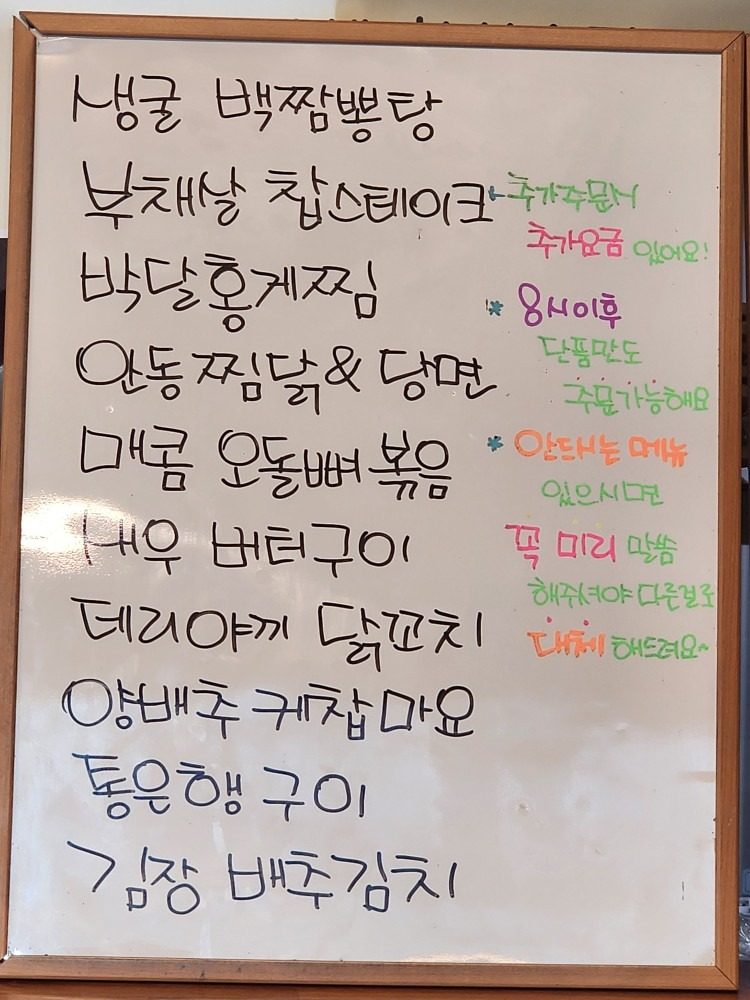 생굴 백짬뽕탕
부채살 찹스테이크
박달홍게찜
안동찜닭 & 당면
매콤 오돌뼈 볶음
새우 버터구이
테리야끼 닭꼬치
양배추 케찹마요
통은행 구이
김장 배추김치
* 추가주문시
추가요금 있어요!
* 8시이후
단품만도
주문가능해요
* 안드시는 메뉴
있으시면
꼭 미리 말씀
해주셔야 다른걸로
대체 해드려요~